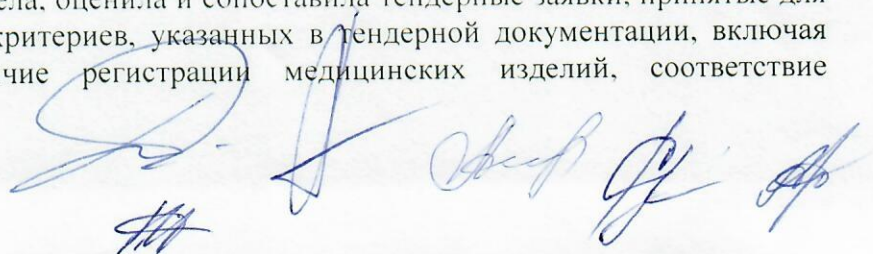 оценила и сопоставила тендерные заявки, принятые для
критериев, указанных в тендерной документации, включая
регистрации медицинских изделий, соответствие